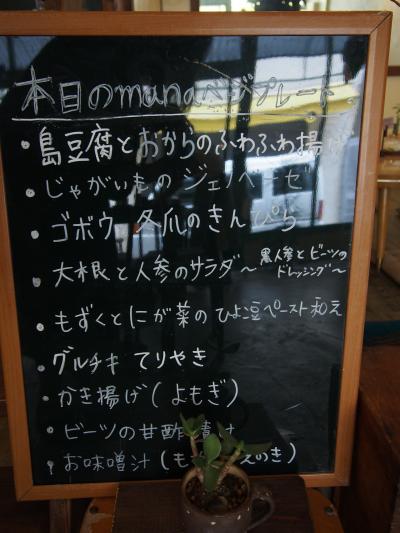 本日のmanaベジプレート
・島豆腐とおからのふわふわ揚げ
・じゃがいものジェノベーゼ
・ゴボウ冬瓜のきんぴら
・大根と人参のサラダ〜黒人参とビーツの
ドレッシング〜
・もずくとにが菜のひよ豆ペースト和え
・グルチキてりやき
・かき揚げ(よもぎ)
・ビーツの甘酢漬け
・お味噌汁(も えのき)